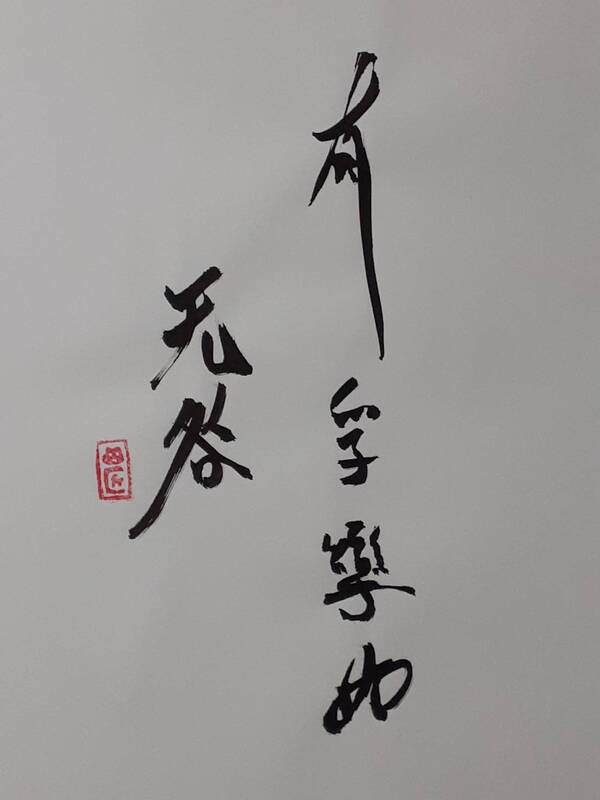 有孚孿如
无咎